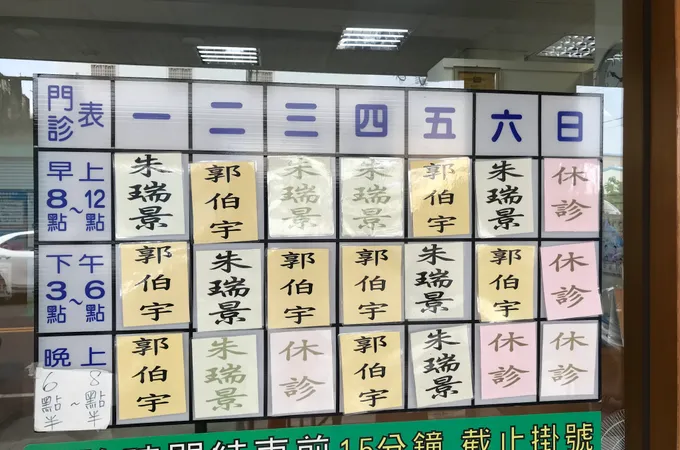 門診表 一 二 三 四 五 六 日
早上 8點~12點 朱瑞景 郭伯宇 朱瑞景 朱瑞景 郭伯宇 朱瑞景 休診
下午 3點~6點 郭伯宇 朱瑞景 郭伯宇 郭伯宇 朱瑞景 郭伯宇 休診
晚上 6點半~8點半 郭伯宇 朱瑞景 休診 郭伯宇 朱瑞景 休診 休診
時間結束前15分鐘 截止掛號